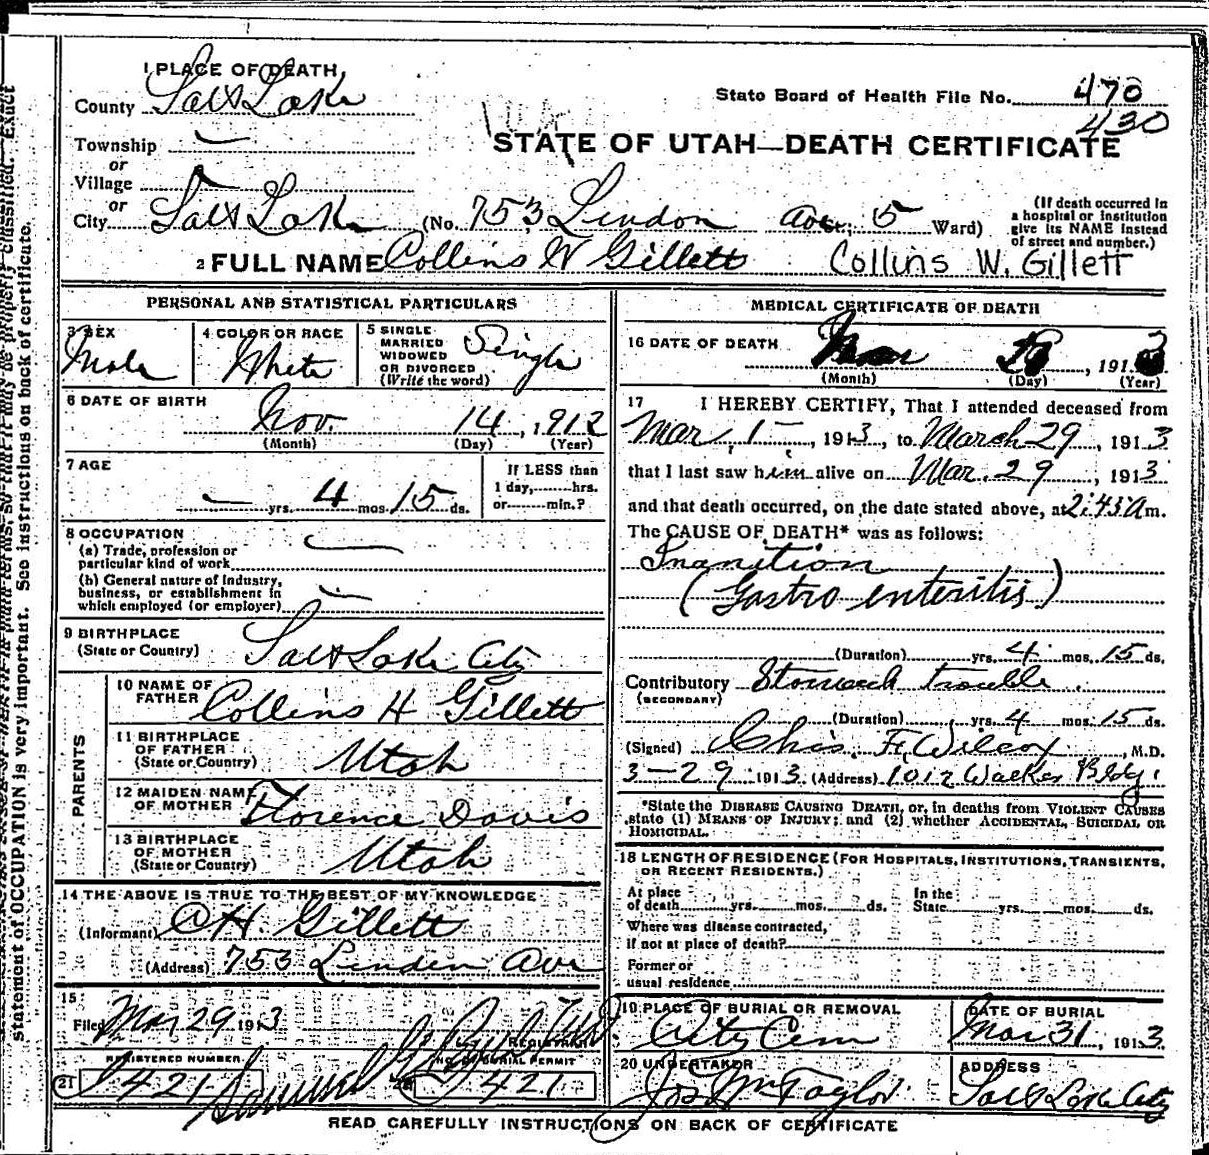 1 PLACE OF DEATH
County Salt Lake
State Board of Health File No. 470
430
Township —
or
Village —
or
STATE OF UTAH—DEATH CERTIFICATE
City Salt Lake (No. 753 Lindon Ave; 5 Ward)
(If death occurred in
a hospital or institution
give its NAME instead
of street and number.)
2 FULL NAME Collins W Gillett Collins W. Gillett
PERSONAL AND STATISTICAL PARTICULARS
3 SEX
Male
4 COLOR OR RACE
White
5 SINGLE
MARRIED
WIDOWED
OR DIVORCED
(Write the word)
Single
6 DATE OF BIRTH
Nov. 14, 1912
(Month) (Day) (Year)
7 AGE
— yrs. 4 mos. 15 ds.
If LESS than
1 day, hrs.
or min.?
8 OCCUPATION
(a) Trade, profession or
particular kind of work —
(b) General nature of Industry,
business, or establishment in
which employed (or employer) —
9 BIRTHPLACE
(State or Country)
Salt Lake City
PARENTS
10 NAME OF
FATHER
Collins H Gillett
11 BIRTHPLACE
OF FATHER
(State or Country)
Utah
12 MAIDEN NAME
OF MOTHER
Florence Davis
13 BIRTHPLACE
OF MOTHER
(State or Country)
Utah
14 THE ABOVE IS TRUE TO THE BEST OF MY KNOWLEDGE
(Informant) C H. Gillett
(Address) 753 Linden Ave
15
Filed Mar 29 1913
REGISTRAR
REGISTERED NUMBER
21 421
NO. OF BURIAL PERMIT
421
MEDICAL CERTIFICATE OF DEATH
16 DATE OF DEATH
Mar , 1913
(Month) (Day) (Year)
17 I HEREBY CERTIFY, That I attended deceased from
Mar, 1—, 1913, to March 29, 1913
that I last saw him alive on Mar. 29, 1913
and that death occurred, on the date stated above, at 2:45 a m.
The CAUSE OF DEATH* was as follows:
Inanition
(Gastro enteritis)
(Duration) yrs. 4 mos. 15 ds.
Contributory Stomach trouble.
(SECONDARY)
(Duration) yrs. 4 mos. 15 ds.
(Signed) Chas. F. Wilcox, M.D.
3-29 1913 (Address) 1012 Walker Bldg.
*State the DISEASE CAUSING DEATH, or, in deaths from VIOLENT CAUSES
state (1) MEANS OF INJURY; and (2) whether ACCIDENTAL, SUICIDAL OR
HOMICIDAL.
18 LENGTH OF RESIDENCE (FOR HOSPITALS, INSTITUTIONS, TRANSIENTS,
OR RECENT RESIDENTS.)
At place
of death yrs. mos. ds.
In the
State yrs. mos. ds.
Where was disease contracted,
if not at place of death?
Former or
usual residence
19 PLACE OF BURIAL OR REMOVAL
City Cem
DATE OF BURIAL
Mar 31, 1913.
20 UNDERTAKER
Jos Wm Taylor
ADDRESS
Salt Lake City
READ CAREFULLY INSTRUCTIONS ON BACK OF CERTIFICATE
statement of OCCUPATION is very important. See instructions on back of certificate.